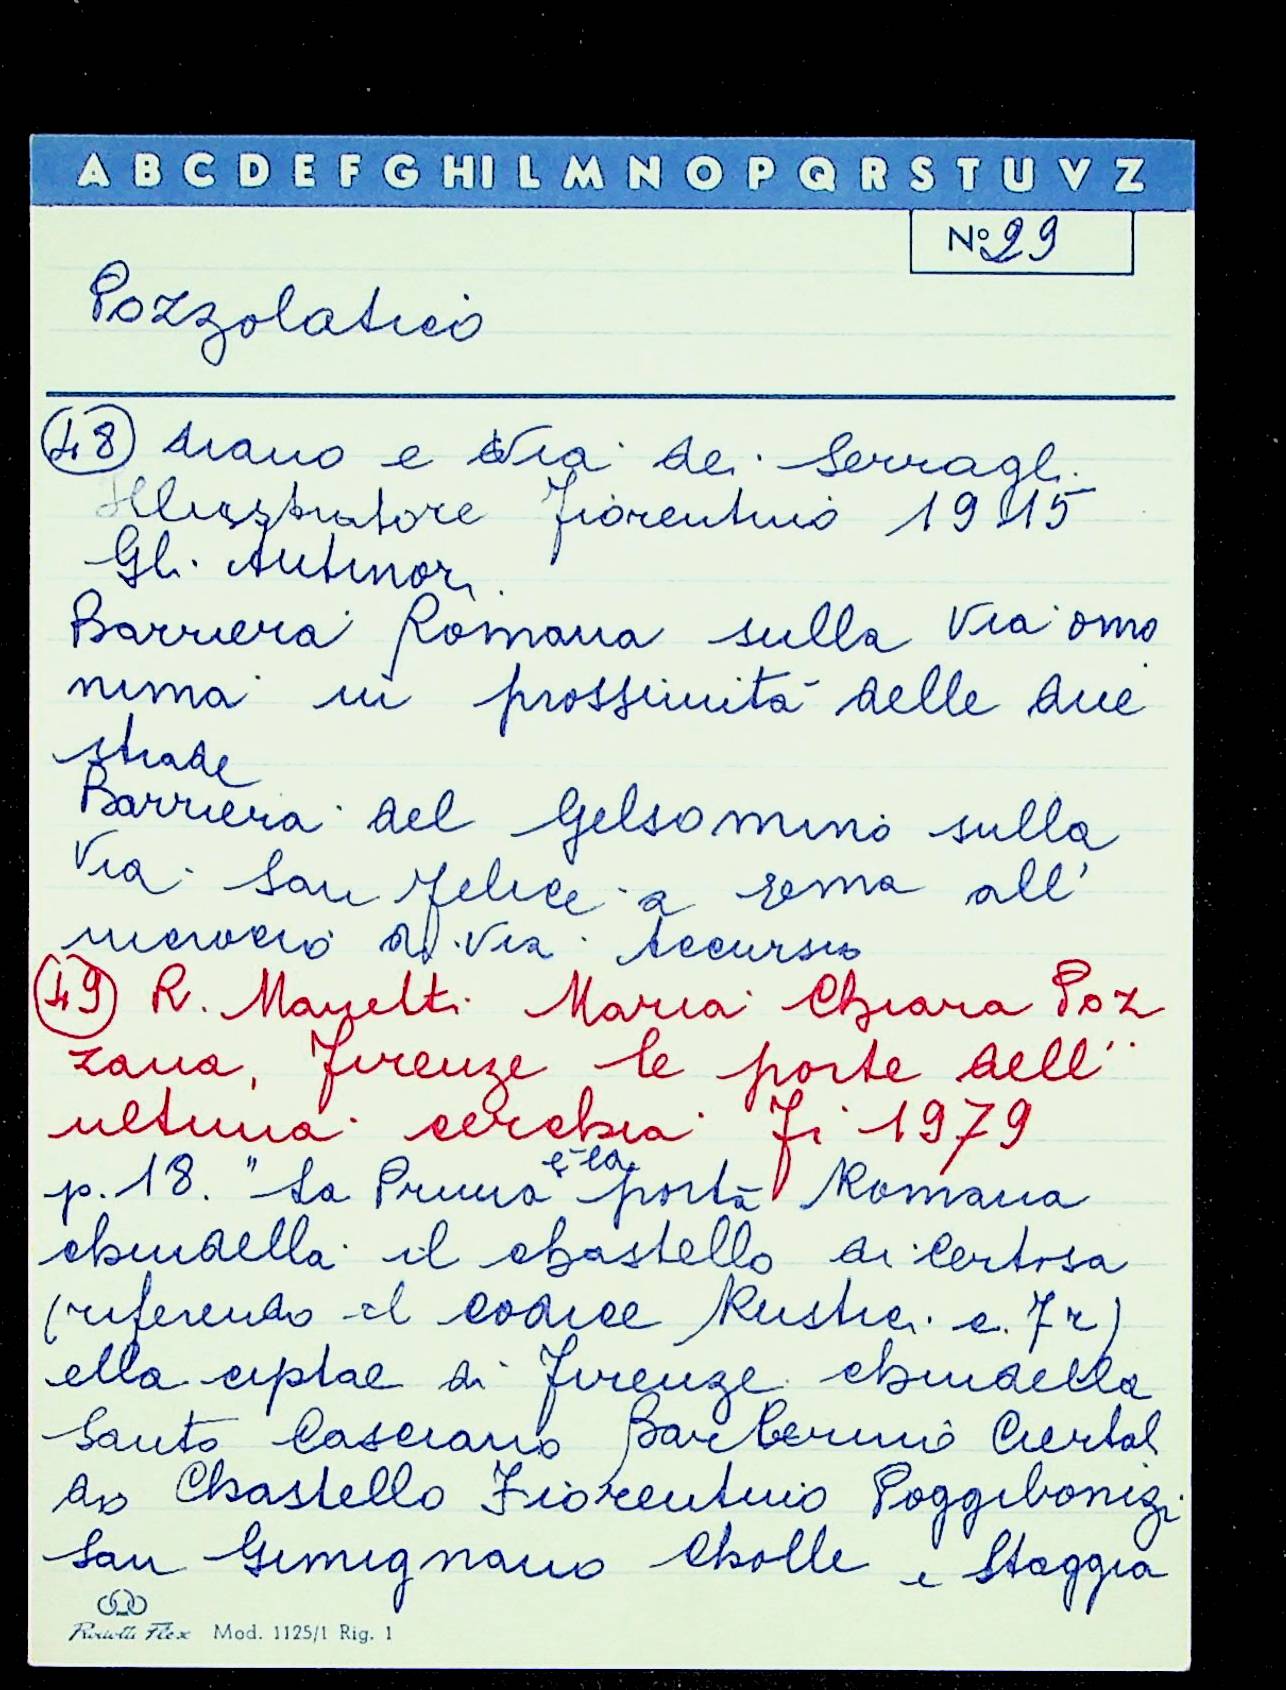 A B C D E F G H I L M N O P Q R S T U V Z
No 29
Pozzolatico
48 diano e Via dei Serragli
Illustratore Fiorentino 1915
Gli Antinori
Barriera Romana sulla Via omo
nima in prossimità delle due
strade
Barriera del Gelsomino sulla
Via San Felice a Ema all'
incrocio di Via Accursio
49 R. Manetti Maria Chiara Poz
zana, Firenze le porte dell'
ultima cerchia Fi 1979
p. 18. "La Prima è la porta Romana
chindella il chastello di Certosa
(riferendo il codice Rustici c. 7r)
ella ciptae di Firenze chindella
Santo Casciano Barberino Ciertal
do Chastello Fiorentino Poggibonizi
San Gimignano Cholle e Staggia
Mod. 1125/1 Rig. 1